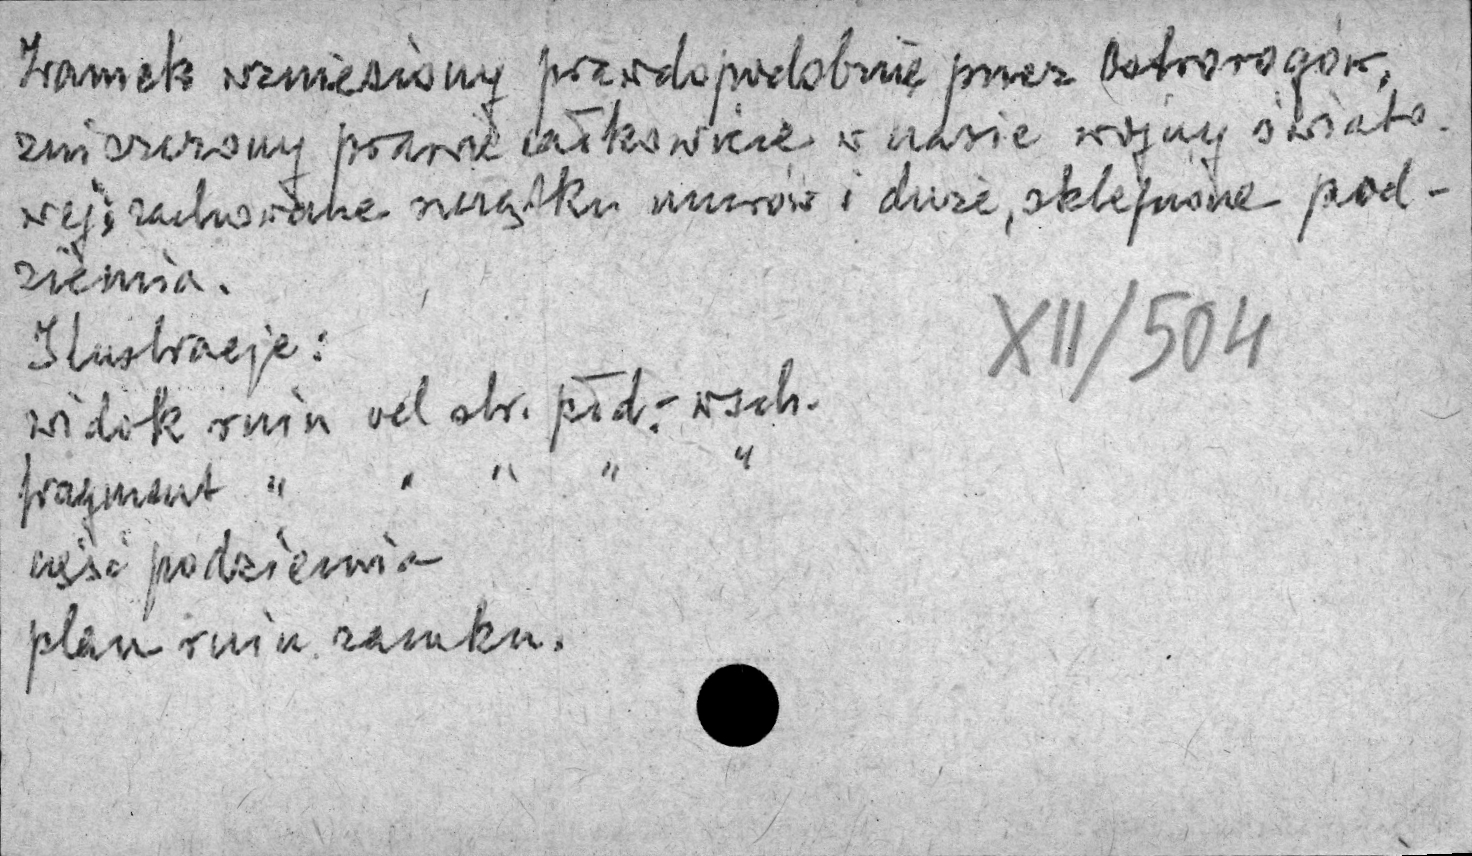 Zamek wzniesiony prawdopodobnie przez Ostrorogów,
zniszczony prawie całkowicie w czasie wojny świato-
wej; zachowane szczątki murów i duże, sklepione pod-
ziemia.
Ilustracje:
XII/504
widok ruin od str. płd.-wsch.
fragment " " " " "
część podziemia
plan ruin zamku.